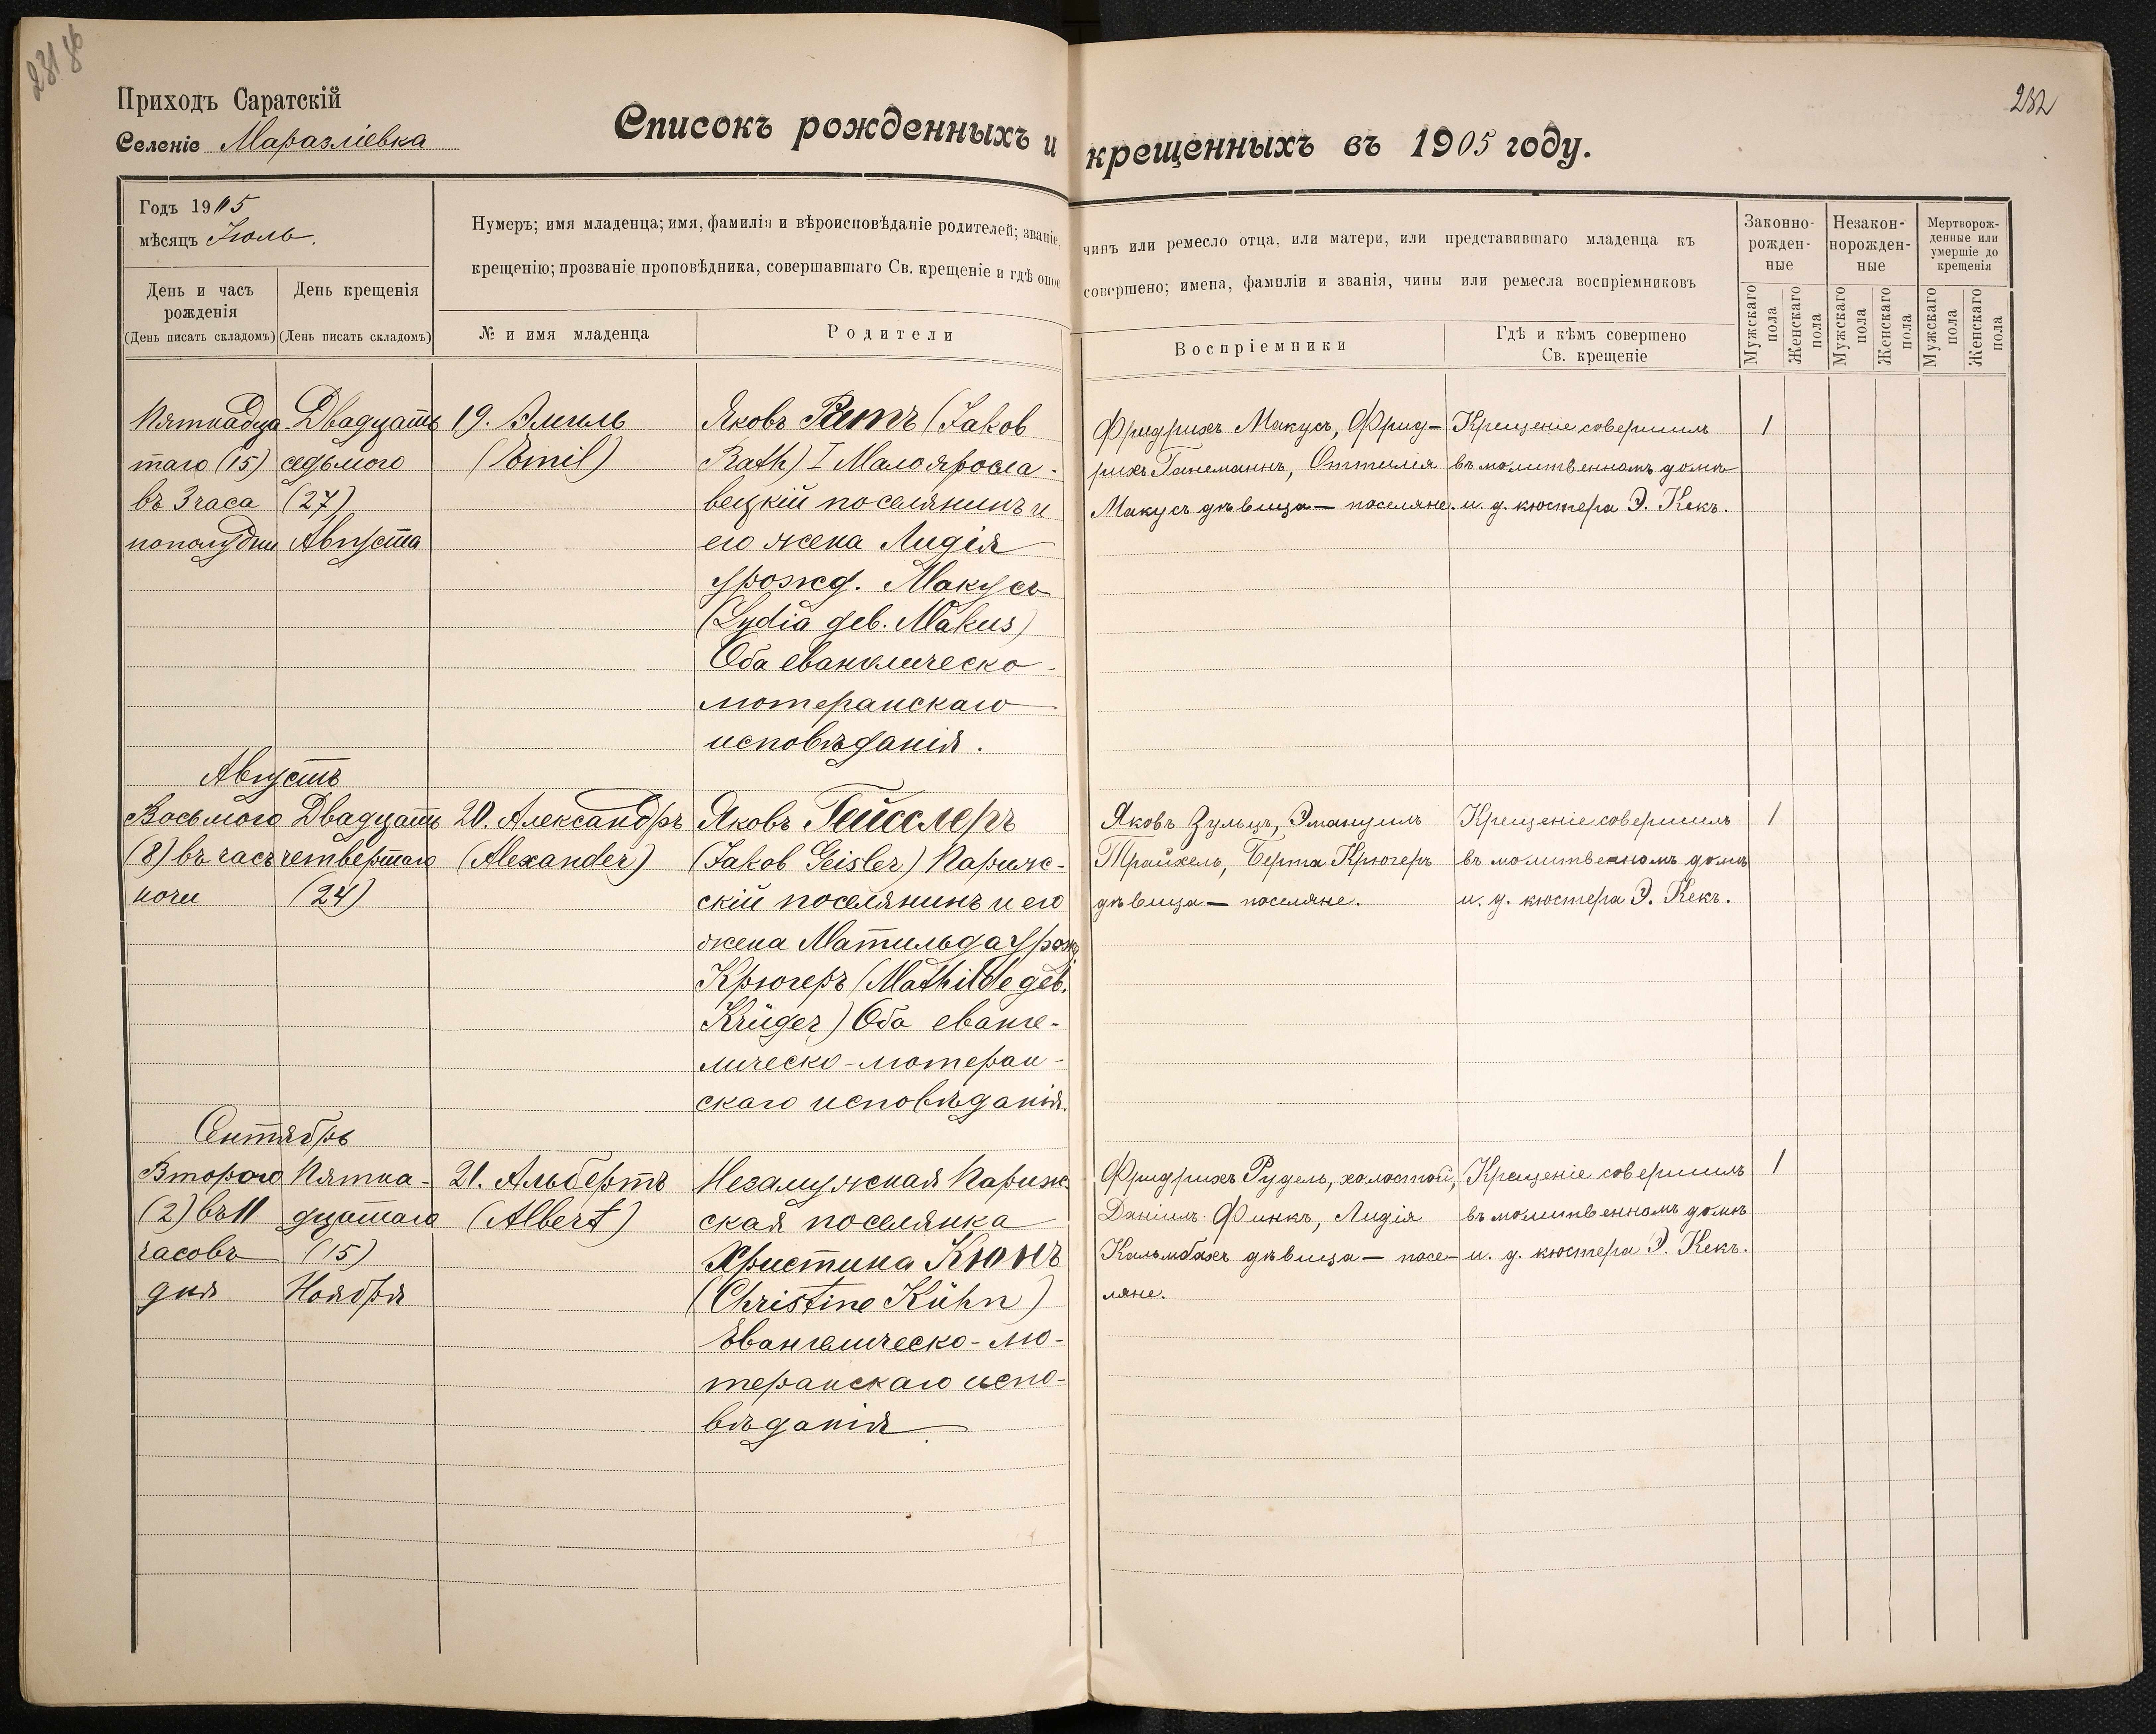 231 об
232
Приходъ Саратскій
Селеніе Маразліевка
Списокъ рожденныхъ и крещенныхъ въ 1905 году.
Годъ 1905
мѣсяцъ Іюль.
День и часъ рожденія
(День писать складомъ)
День крещенія
(День писать складомъ)
Нумеръ; имя младенца; имя, фамилія и вѣроисповѣданіе родителей; званіе,
чинъ или ремесло отца, или матери, или представившаго младенца къ
крещенію; прозваніе проповѣдника, совершавшаго Св. крещеніе и гдѣ оное
совершено; имена, фамиліи и званія, чины или ремесла воспріемниковъ
№ и имя младенца
Родители
Воспріемники
Гдѣ и кѣмъ совершено
Св. крещеніе
Законно-
рожден-
ные
Незакон-
норожден-
ные
Мертворож-
денные или
умершіе до
крещенія
Мужскаго пола
Женскаго пола
Мужскаго пола
Женскаго пола
Мужскаго пола
Женскаго пола
Пятнадца
таго (15)
въ 3 часа
пополудни
Двадцать
седьмого
(27)
Августа
19. Эмиль
(Emil)
Яковъ Ратъ (Jakob
Rath) I Малояросла-
вецкій поселянинъ и
его жена Лидія
урожд. Макусъ
(Lydia geb. Makus)
Оба евангелическо-
лютеранскаго
исповѣданія.
Фридрихъ Макусъ, Фрид-
рихъ Ганеманнъ, Оттилія
Макусъ дѣвица — поселяне.
Крещеніе совершилъ
въ молитвенномъ домѣ
и. д. кюстера Э. Кекъ.
1
Августъ
Восьмого
(8) въ часъ
ночи
Двадцать
четвертаго
(24)
20. Александръ
(Alexander)
Яковъ Гейсслеръ
(Jakob Geisler) Париж-
скій поселянинъ и его
жена Матильда урож
Крюгеръ (Mathilde geb.
Krüger) Оба еванге-
лическо-лютеран-
скаго исповѣданія.
Яковъ Зульцъ, Эмануилъ
Трайхель, Берта Крюгеръ
дѣвица — поселяне.
Крещеніе совершилъ
въ молитвенномъ домѣ
и. д. кюстера Э. Кекъ.
1
Сентябрь
Второго
(2) въ 11
часовъ
дня
Пятна-
дцатаго
(15)
Ноября
21. Альбертъ
(Albert)
Незамужная Париж
ская поселянка
Христина Кюнъ
(Christine Kühn)
Евангелическо-лю-
теранскаго испо-
вѣданія
Фридрихъ Рудель, холостой,
Даніилъ Финкъ, Лидія
Кальмбахъ дѣвица — посе-
ляне.
Крещеніе совершилъ
въ молитвенномъ домѣ
и. д. кюстера Э. Кекъ.
1